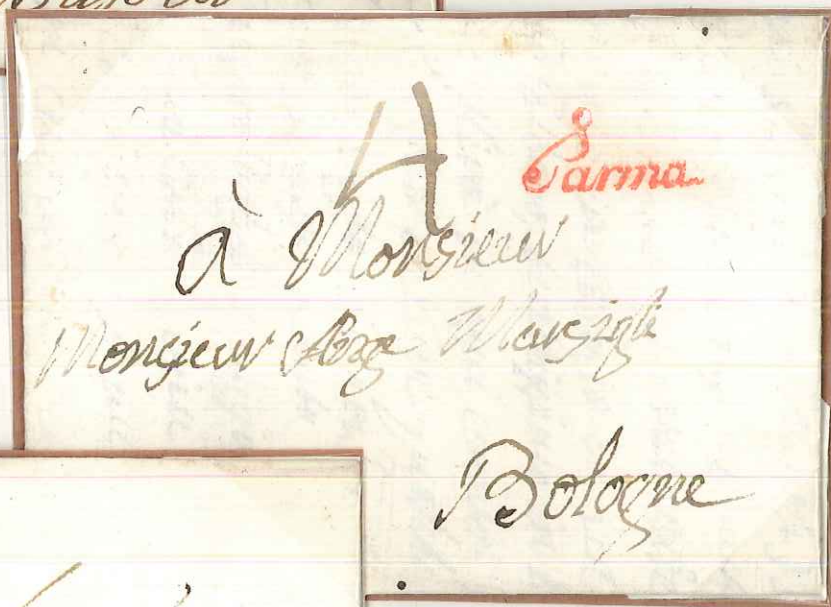 4
Parma
à Monsieur
Monsieur Marsigli
Bologne